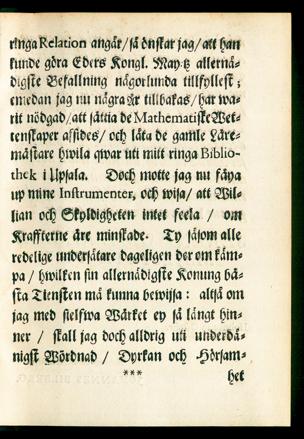 ringa Relation angår/ så önskar jag/ att han
kunde göra Eders Kongl. May:tz allernå-
digste Befallning någorlunda tillfyllest;
emedan jag nu några år tillbakas/ har wa-
rit nödgad/ att såttia de Mathematiske Wet-
tenskaper assides/ och låta de gamle Låre-
måstare hwila qwar uti mitt ringa Biblio-
thek i Upsala. Doch motte jag nu fåya
up mine Instrumenter, och wisa/ att Wil-
lian och Skyldigheten intet feela / om
Kraffterne åre minskade. Ty såsom alle
redelige undersåtare dageligen der om kåm-
pa / hwilken sin allernådigste Konung bå-
sta Tiensten må kunna bewijsa: altså om
jag med sielfwa Wårket ey så långt hin-
ner / skall jag doch alldrig uti underdå-
nigst Wördnad / Dyrkan och Hörsam-
*** het